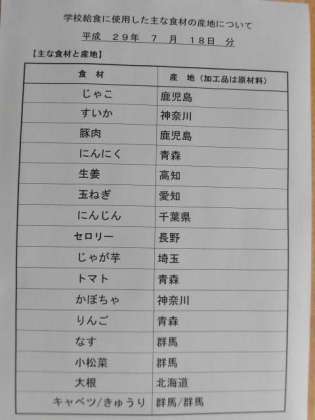 学校給食に使用した主な食材の産地について
平成 29年 7 月 18日 分
【主な食材と産地】
食 材 産 地（加工品は原材料）
じゃこ 鹿児島
すいか 神奈川
豚肉 鹿児島
にんにく 青森
生姜 高知
玉ねぎ 愛知
にんじん 千葉県
セロリー 長野
じゃが芋 埼玉
トマト 青森
かぼちゃ 神奈川
りんご 青森
なす 群馬
小松菜 群馬
大根 北海道
キャベツ/きゅうり 群馬/群馬